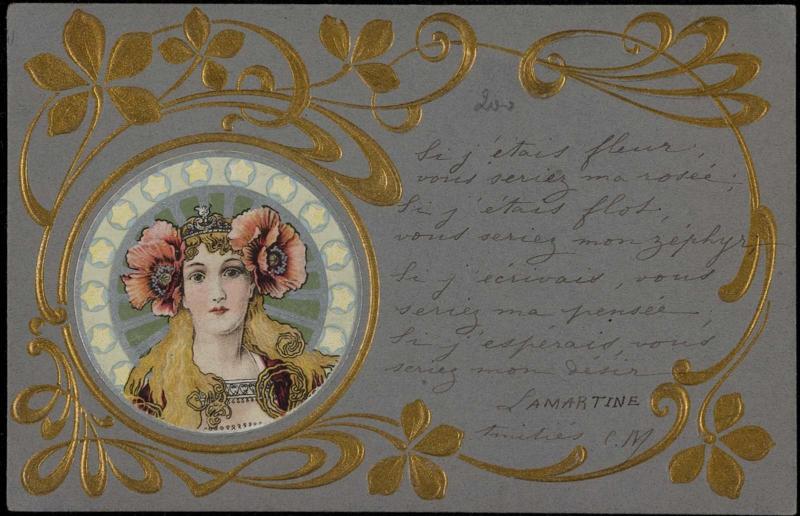 200
Si j'étais fleur,
vous seriez ma rosée;
Si j'étais flot,
vous seriez mon zéphyr,
Si j'écrivais, vous
seriez ma pensée
Si j'espérais, vous
seriez mon désir
LAMARTINE
Amitiés C. M